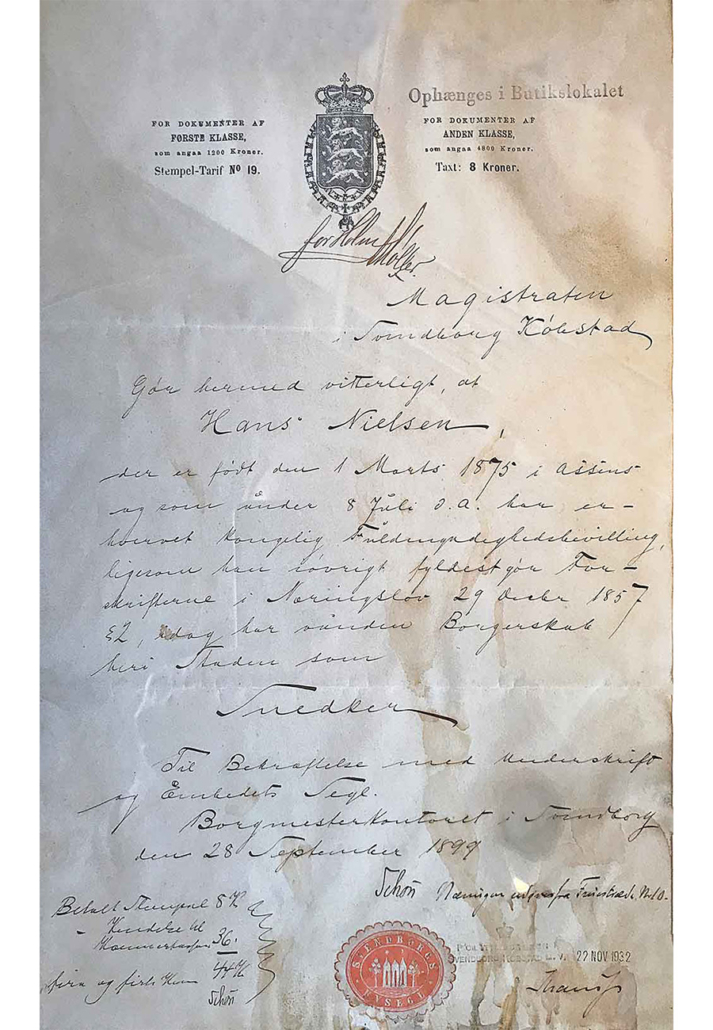 Ophænges i Butikslokalet
FOR DOKUMENTER AF
FØRSTE KLASSE,
som angaa 1200 Kroner.
Stempel-Tarif No 19.
FOR DOKUMENTER AF
ANDEN KLASSE,
som angaa 4800 Kroner.
Taxt: 8 Kroner.
for Holm
Møller.
Magistraten
i Svendborg Købstad
Gør hermed vitterligt, at
Hans Nielsen,
der er født den 1 Marts 1875 i Assens
og som under 8 Juli d.A. har er-
hvervet kongelig Fuldmyndighedsbevilling,
ligesom han iøvrigt fyldestgør For-
skrifterne i Næringslov 29 Decbr 1857
§2, idag har vunden Borgerskab
heri Staden som
Snedker
Til Bekræftelse med Underskrift
og Embedets Segl.
Borgmesterkontoret i Svendborg
den 28 September 1899
Schøn
Næringen
Betalt Stempel 8 Kr
- Kendelse til
Kæmnerkassen 36.
44 Kr
fire og firti Kr
Schøn
SVENDBORGS
BYSEGL
22 NOV 1932